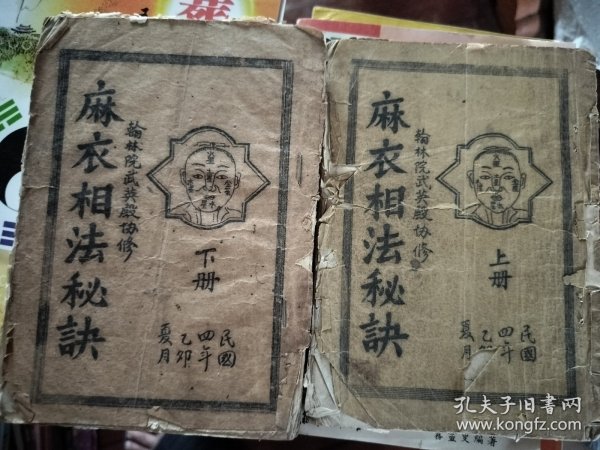 麻衣相法秘訣
翰林院武英殿协修
下册
民國
四年
乙卯
夏月
麻衣相法秘訣
翰林院武英殿协修
上册
民國
四年
乙
夏月
孔夫子旧书网
www.kongfz.com